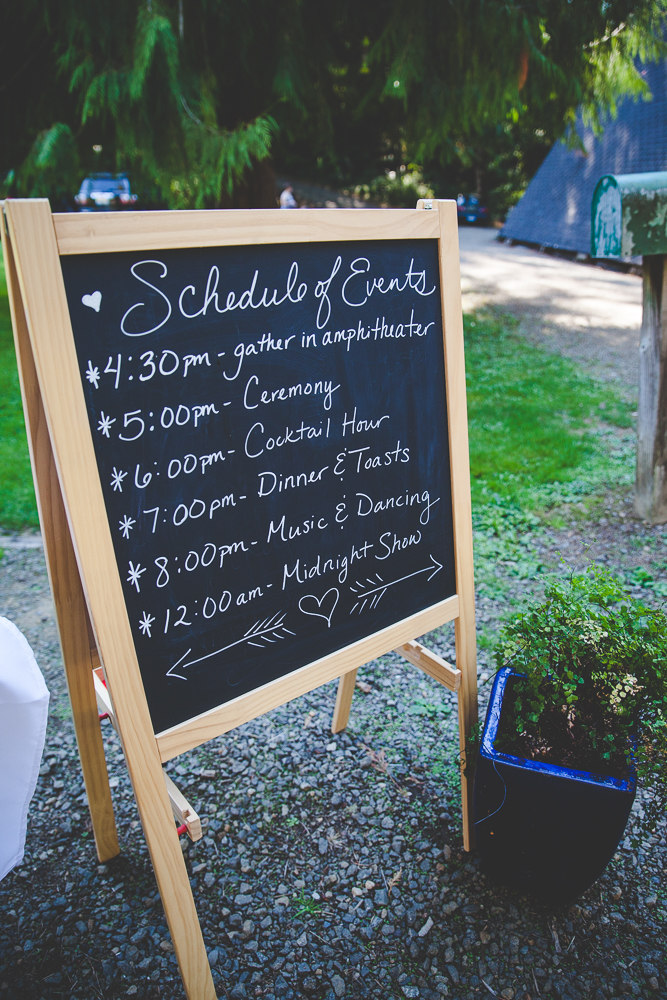 Schedule of Events
*4:30pm - gather in amphitheater
*5:00pm - Ceremony
*6:00pm - Cocktail Hour
*7:00pm - Dinner & Toasts
*8:00pm - Music & Dancing
*12:00am - Midnight Show